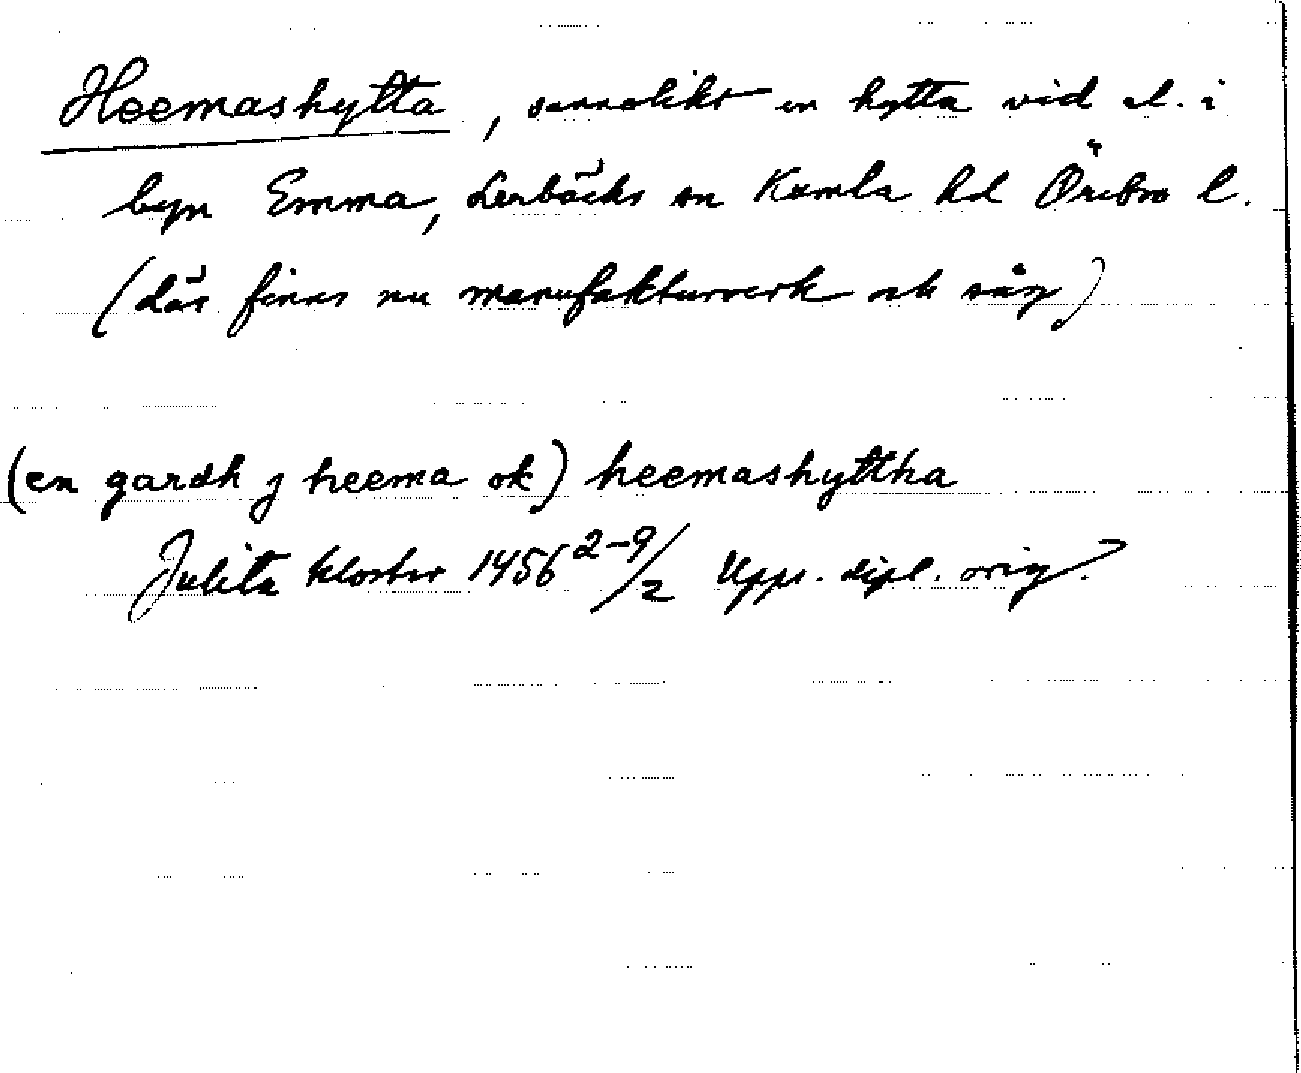 Heemashytta, sannolikt en hytta vid el. i
byn Emma, Lerbäcks sn Kumla hd Örebro l.
(där finns nu manufakturverk ock såg)
(en gardh j heema ok) heemashyttha
Julita kloster 1456 2-9/2 Upps. dipl. orig.